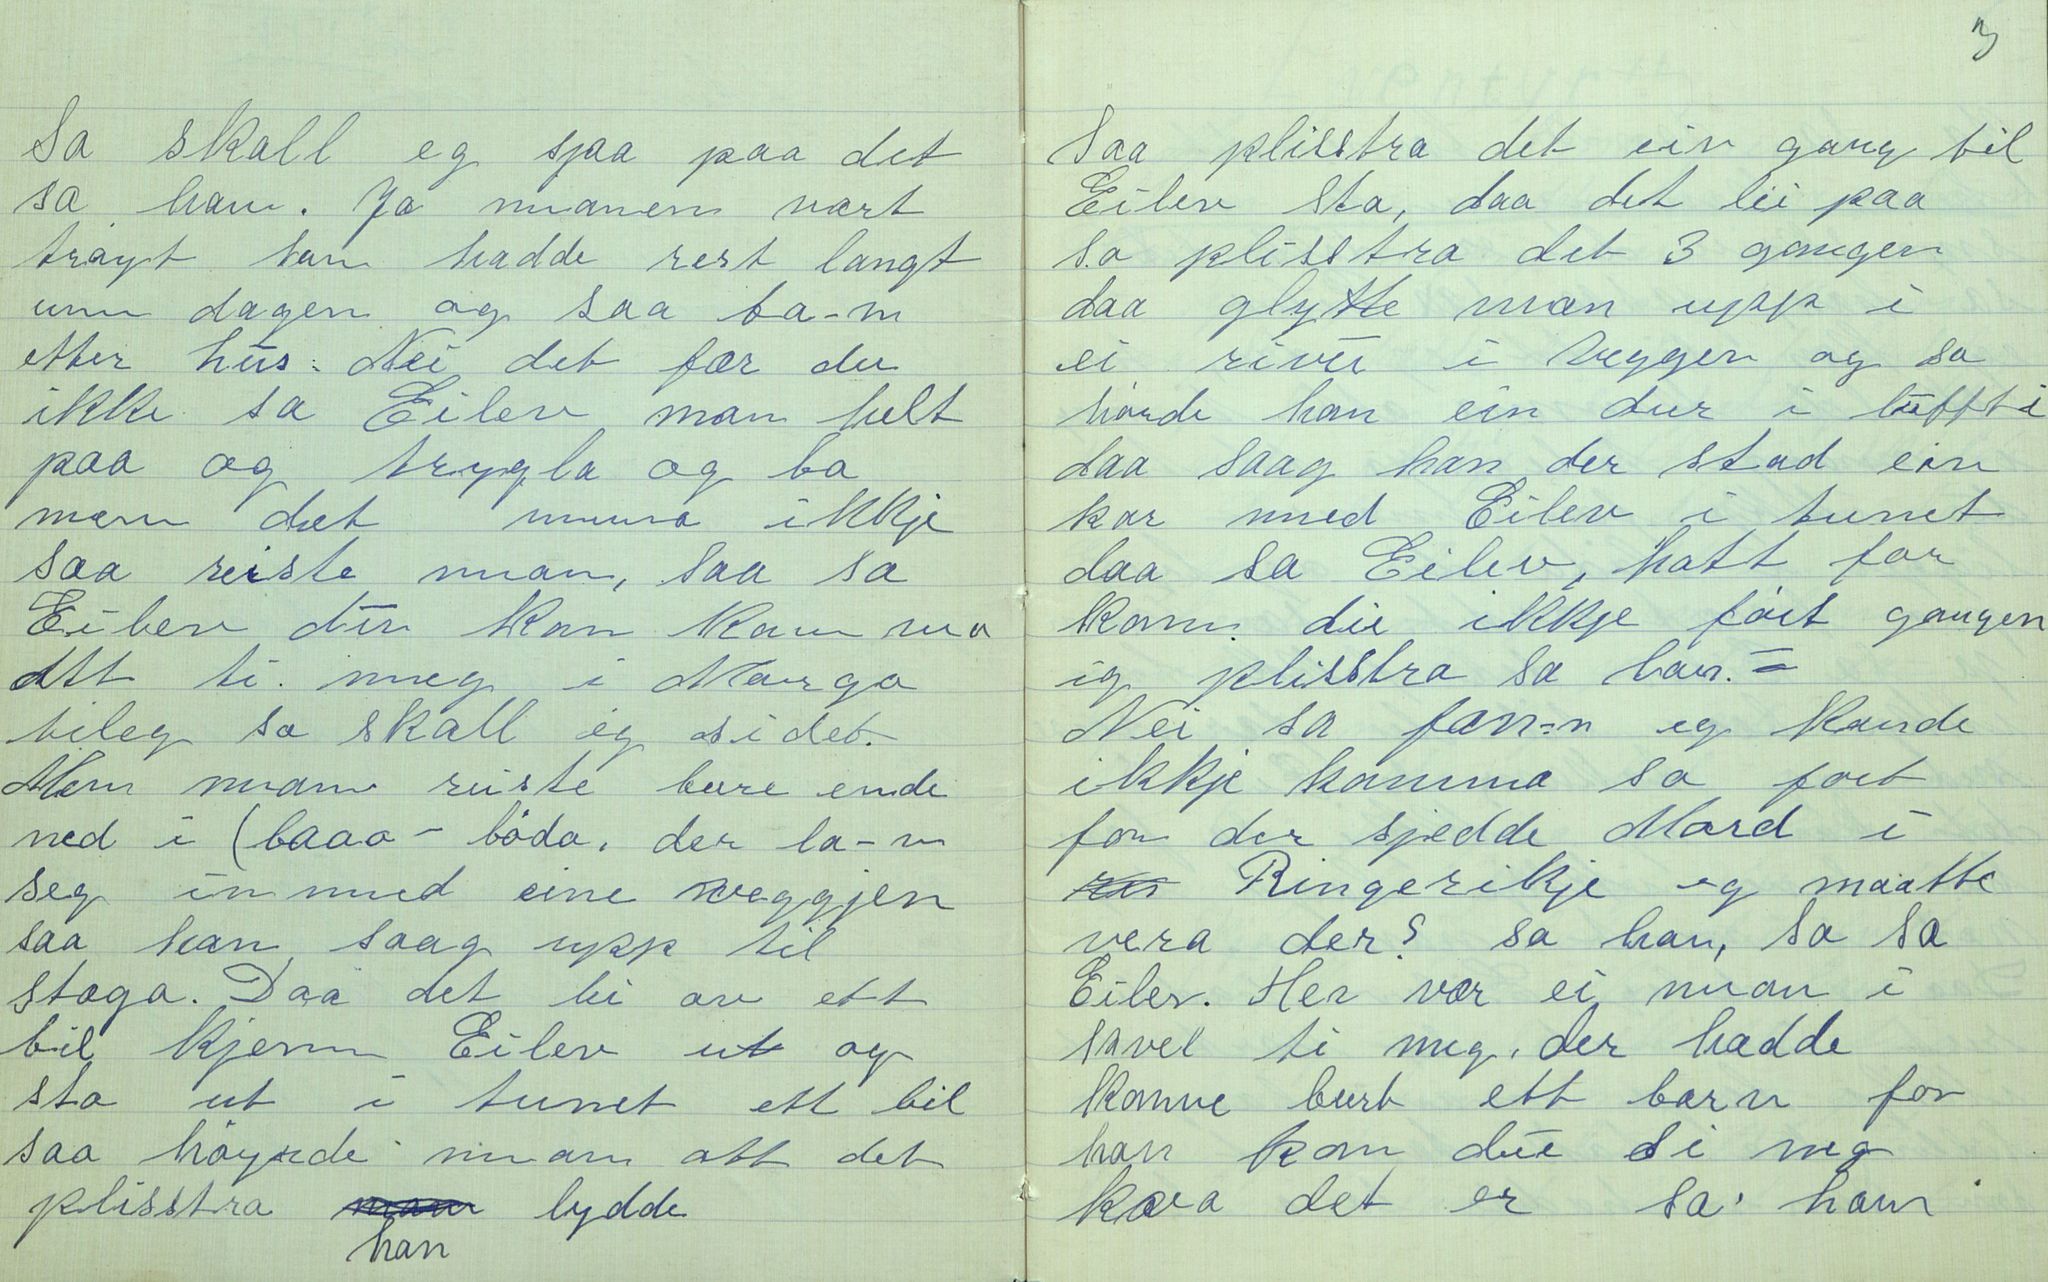 Sa skall eg sjaa paa det
sa han. Ja manen vart
trøyt han hadde rest langt
um dagen og saa ba-n
etter hus. Nei det fær du
ikke sa Eilev man helt
paa og trygla og ba
men det muna ikkje
saa reiste man, saa sa
Eilev du kan kom ma
Att ti meg i Morgo
tileg so skall eg sidet.
Men man reiste bare ende
ned i (baao-böda, der la-n
seg in med eine veggjen
saa han saag upp til
stoga. Daa det lei av ett
bil kjem Eilev ut og
sto ut i tunet ett bil
saa høyrde man att det
plisstra han lydde
3
Saa plisstra det ein gang til
Eilev sto, daa det lei paa
so plisstra det 3 gongen
daa glytte man upp i
ei rivu i Veggen og so
hørde han ein dur i lufti
daa saag han der stod ein
kar med Eilev i tunet
daa sa Eilev, hott for
kom du ikkje föst gongen
eg plisstra sa han. =
Nei sa fan-n eg kunde
ikkje komma so fort
for der sjedde Mord i
Ringerikje eg maatte
vera der? sa han, so sa
Eilev. Her var ei man i
kvel ti meg, der hadde
komme burt ett barn for
han kan du si meg
kva det er sa han